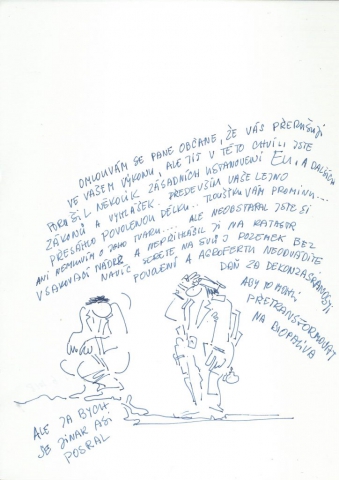 OMLOUVÁM SE PANE OBČANE, ŽE VÁS PŘERUŠUJI
VE VAŠEM VÝKONU, ALE JIŽ V TÉTO CHVÍLI JSTE
PORUŠIL NĚKOLIK ZÁSADNÍCH USTANOVENÍ EU, A DALŠÍCH
ZÁKONŮ A VYHLÁŠEK. PŘEDEVŠÍM VAŠE LEJNO
PŘESÁHLO POVOLENOU DÉLKU.. TLOUŠŤKU VÁM PROMINU....
ANI NEMLUVÍM O JEHO TVARU.... ALE NEOBSTARAL JSTE SI
VSAKOVACÍ NÁDRŽ A NEPŘIHLÁSIL JI NA KATASTR
NAVÍC SERETE NA SVŮJ POZEMEK BEZ
POVOLENÍ A AGROFERTU NEODVÁDÍTE
DAŇ ZA
ABY TO MOHLI
PŘETRANSFORMOVAT
NA BIOPALIVA
ALE JA BYCH
SE JINAK ASI
POSRAL